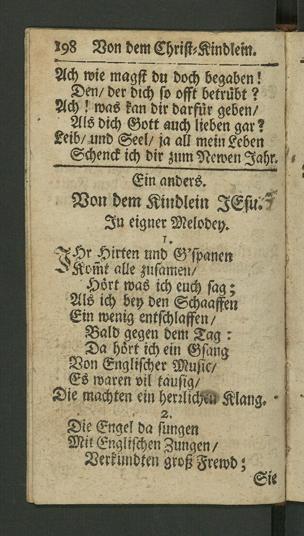 198 Von dem Christ-Kindlein.
Ach wie magst du doch begaben!
Den/ der dich so offt betrübt?
Ach! was kan dir darfür geben/
Als dich Gott auch lieben gar?
Leib/ und Seel/ ja all mein Leben
Schenck ich dir zum Newen Jahr.
Ein anders.
Von dem Kindlein JEsu.
In eigner Melodey.
1.
IHr Hirten und G'spanen
Kom̃t alle zusamen/
Hört was ich euch sag;
Als ich bey den Schaaffen
Ein wenig entschlaffen/
Bald gegen dem Tag:
Da hört ich ein Gsang
Von Englischer Music/
Es waren vil tausig/
Die machten ein herzlichen Klang.
2.
Die Engel da sungen
Mit Englischen Zungen/
Verkündten groß Frewd;
Sie